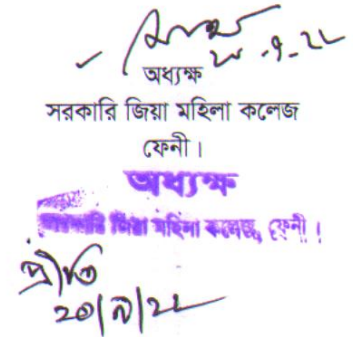 ২০-৯-২২
অধ্যক্ষ
সরকারি জিয়া মহিলা কলেজ
ফেনী।
অধ্যক্ষ
সরকারি জিয়া মহিলা কলেজ, ফেনী।
প্রীতি
২০/৯/২২